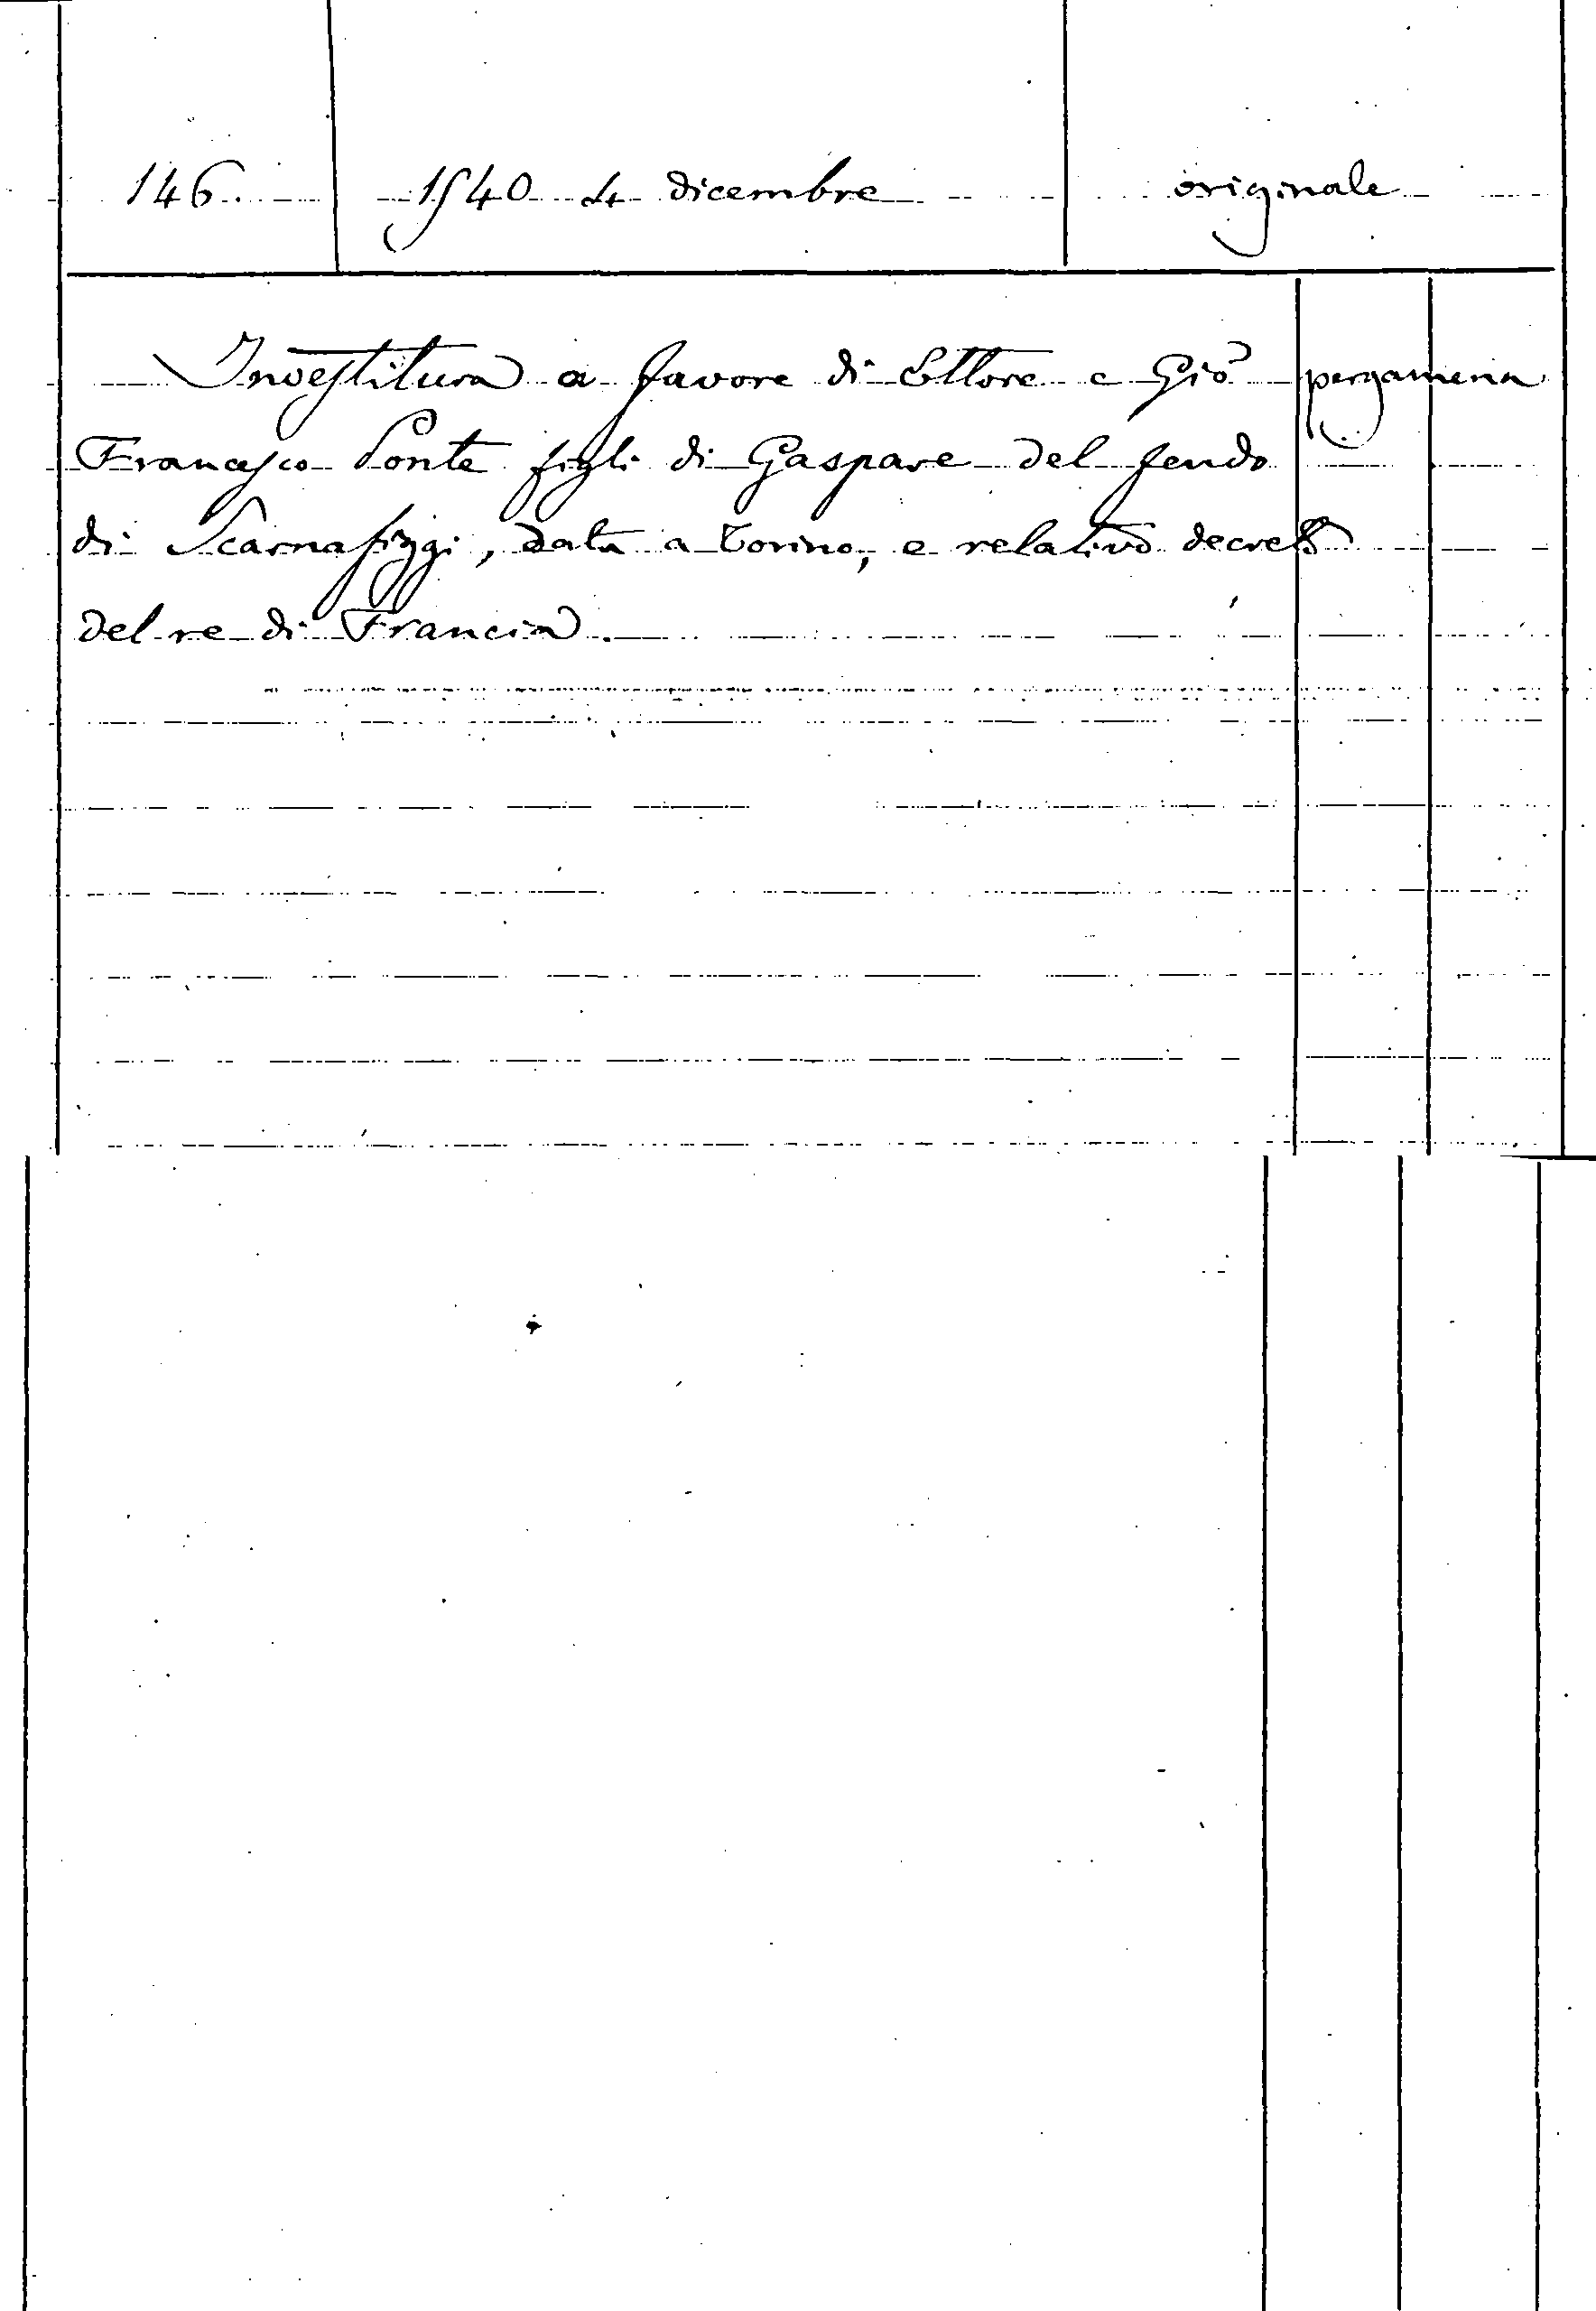 146. 1540 4 dicembre originale
Investitura a favore di Ettore e Gio pergamena
Francesco Ponte figli di Gaspare del feudo
di Scarnafiggi, data a Torino, e relativo decreto
del re di Francia.